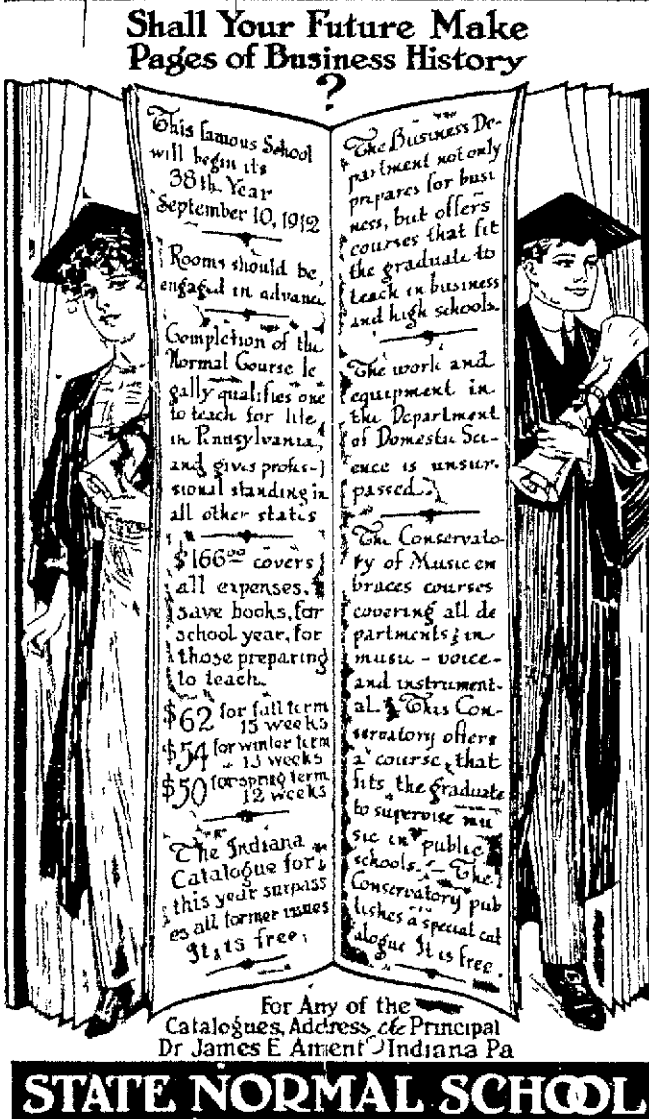 Shall Your Future Make
Pages of Business History
?
This famous School
will begin its
38th Year
September 10, 1912
Rooms should be
engaged in advance
Completion of the
Normal Course le
gally qualifies one
to teach for life
in Pennsylvania,
and gives profes-
sional standing in
all other states
$166.00 covers
all expenses,
save books, for
school year, for
those preparing
to teach.
$62 for fall term
15 weeks
$54 for winter term
13 weeks
$50 for spring term
12 weeks
The Indiana
Catalogue for
this year surpass
es all former issues
It is free.
The Business De-
partment not only
prepares for busi
ness, but offers
courses that fit
the graduate to
teach in business
and high schools.
The work and
equipment in
the Department
of Domestic Sci-
ence is unsur-
passed.
The Conservato-
ry of Music em
braces courses
covering all de
partments in
music - voice-
and instrument-
al. This Con-
servatory offers
a course that
fits the graduate
to supervise mu
sic in public
schools. - The
Conservatory pub
lishes a special cat
alogue It is free.
For Any of the
Catalogues, Address the Principal
Dr James E Ament Indiana Pa
STATE NORMAL SCHOOL